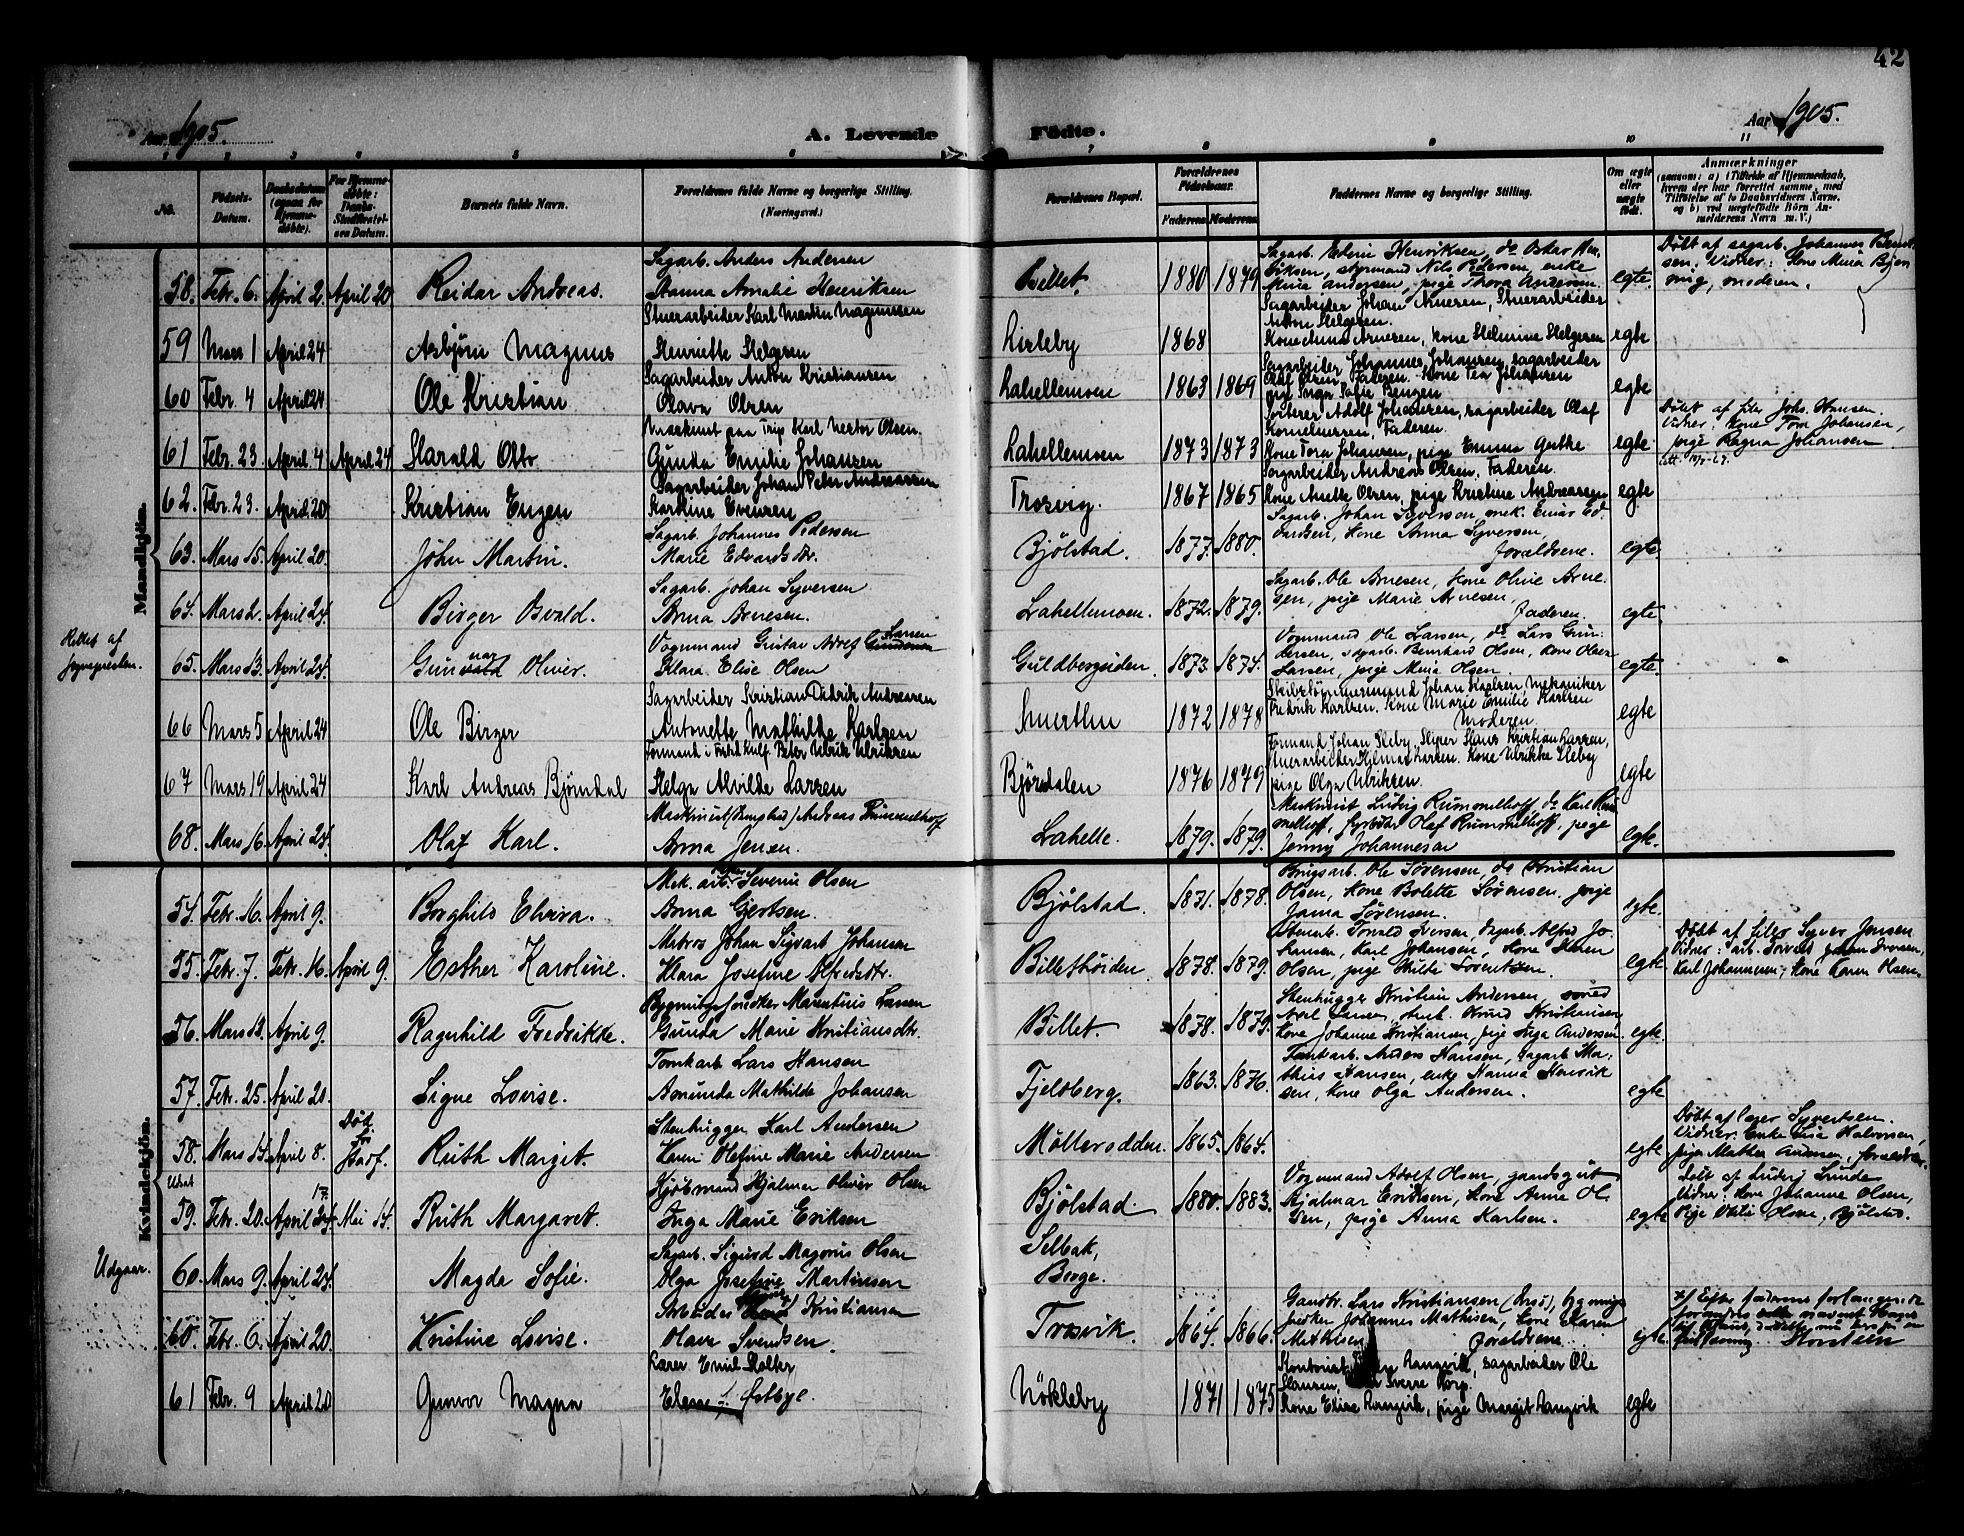 42
Aar 1905.
A. Levende
Fødte.
Aar 1905.
No.
Fødsels-
Datum.
Daabsdatum
(ogsaa for
Hjemme-
døbte).
For Hjemme-
døbte:
Daabs-
Stadfæstel-
sen Datum.
Barnets fulde Navn.
Forældrenes fulde Navne og borgerlige Stilling.
(Næringsvei.)
Forældrenes Bopæl.
Forældrenes
Fødselsaar.
Faderens
Moderens
Faddernes Navne og borgerlige Stilling.
Om ægte
eller
uægte
født.
Anmærkninger
(saasom: a) i Tilfælde af Hjemmedaab,
hvem der har forrettet samme, med
Tilføielse af to Daabsvidners Navne,
og b) ved uægtefødte Børn An-
melderens Navn m. V.)
Mandkjøn.
Sagarb. Anders Andersen
58. Febr. 6. April 2. April 20 Reidar Andreas. Hanna Amalie Henriksen
Billet. 1880 1879
Sagarb. Edvin Henriksen, do Oskar Hen-
riksen, styrmand Nils Pedersen, enke
Mina Andersen, pige Thora Andersen.
egte.
Døbt af sagarb. Johannes
Vidner: Kone Mina
moderen.
Stuerarbeider Karl Martin Magnussen
59 Mars 1 April 24 Asbjørn Magnus Henriette Helgesen
Lisleby 1868
Sagarbeider Johan Arnesen, Stuerarbeider
Anton Helgesen.
Kone Anna Arnesen, kone Helmine Helgesen
egte
Sagarbeider Anton Kristiansen
60 Febr. 4 April 24 Ole Kristian Olava Olsen
Lahellemoen 1863 1869
Sagarbeider Johannes Johansen, sagarbeider
Olaf Olsen, Faderen. Kone Tea Johansen
pige Sofie Bengen
egte
Maskinist paa Trip Karl Nestor Olsen.
61 Febr. 23 April 4 April 24 Harald Otto Gunda Emilie Johansen
Lahellemoen 1873 1873
Sorterer Adolf Johansen, sagarbeider Olaf
Korneliussen, Faderen.
Kone Tora Johansen, pige Emma Gutke
egte
Døbt af Johs. Hansen.
Vidner: Kone Tora Johansen,
pige Ragna Johansen
Sagarbeider Johan Peter Andreassen
62. Febr. 23. April 20 Kristian Eugen Karoline Evensen
Trosvig. 1867 1865
Sagarbeider Andreas Olsen, Faderen.
Kone Anette Olsen, pige Kristine Andreassen
egte
Sagarb. Johannes Pedersen
63. Mars 15. April 20. John Martin. Marie Edvardsdtr.
Bjølstad. 1877. 1880.
Sagarb. Johan Syversen, mek. Einar Ed-
vardsen, Kone Anna Syversen,
Forældrene.
egte
Sagarb. Johan Syversen
64. Mars 2. April 24. Birger Osvald. Anna Arnesen.
Lahellemoen. 1872. 1879.
Sagarb. Ole Arnesen, Kone Oline Arne-
sen, pige Marie Arnesen,
Faderen.
egte.
Rettet af
sognepresten.
Vognmand Gustav Adolf Gundersen Larsen
65. Mars 13. April 24. Gunvald nar Oliver. Klara Elise Olsen
Guldbergsiden. 1873. 1874.
Vognmand Ole Larsen, do Lars Gun-
dersen, sagarb. Bernhard Olsen, Kone Olsen
Larsen, pige Mina Olsen
egte.
Sagarbeider Kristian Didrik Andreasen
66 Mars 5 April 24 Ole Birger Antonette Mathilde Karlsen
1872 1878
Skibstømmermand Johan Karlsen, Mekaniker
Fredrik Karlsen. Kone Marie Emilie Karlsen
Moderen
egte
Formand i Peter Ulrik Ulriksen
67 Mars 19 April 24 Karl Andreas Bjørndal Helga Alvilde Larsen
Bjørndalen 1876 1879
Formand Johan Sleby, Skiper Hans Kristian Larsen,
Stuerarbeider Hjelmar Larsen. Kone Ulrikke Sleby
pige Olga Ulriksen.
egte
Maskinist Andreas Rummelhoff
68. Mars 16. April 24. Olaf Karl. Anna Jensen.
Lahelle. 1879. 1879.
Maskinist Ludvig Rummelhoff, do Karl Rum-
melhoff, fyrbøder Olaf Rummelhoff, pige
Jenny Johannesen
egte.
Kvindekjøn.
Mek. arb. Severin Olsen
54. Febr. 16. April 9. Borghild Elvira. Anna Gjertsen.
Bjølstad. 1871. 1878.
Brugsarb. Ole Sørensen, do Kristian
Olsen, Kone Bolette Sørensen, pige
Janna Sørensen.
egte.
Matros Johan Sigvart Johansen
55. Febr. 7. Febr. 16. April 9. Esther Karoline. Klara Josefine Alfredsdtr.
Billethøiden. 1878. 1879.
Stenarb. Torvald Iversen, Sagarb. Alfred Jo-
hansen, Karl Johansen, Kone Karen
Olsen, pige Hulda Lorentzen.
egte
Døbt af Syver Jensen
Vidner: arb. Torvald Iversen,
Karl Johannesen, Kone Karen Olsen.
Bygningssnedker Marentius Larsen
56. Mars 12. April 9. Ragnhild Fredrikke. Gunda Marie Kristiansdtr.
Billet. 1878. 1879.
Stenhugger Kristian Andersen,
Axel Larsen, Knud Kristiansen
Kone Johanne Kristiansen, pige Inga Andersen.
egte.
Tomtearb. Lars Hansen
57. Febr. 25. April 20. Signe Lovise. Amunda Mathilde Johansen
Fjeldberg. 1863. 1876.
Tomtearb. Anders Hansen, Sagarb. Ma-
thias Hansen, enke Hanna Henrik-
sen, Kone Olga Andersen.
egte
Stenhugger Karl Andersen
58. Mars 15. April 8. Død før stadf. Ruth Margit. Karen Olefine Marie Andersen
Møllerodden. 1865. 1864.
egte
Døbt af læge Syvertsen.
Vidner: Enke Lisa Halvorsen,
pige Mathea Andersen, forældre.
Udsat
Kjøbmand Hjalmar Oliver Olsen
59. Febr. 20. April 24. 17. Mai 14. Ruth Margaret. Inga Marie Eriksen
Bjølstad. 1880. 1883.
Vognmand Adolf Olsen, gaardsgut
Hjalmar Eriksen, Kone Anne Ol-
sen, pige Anna Karlsen.
egte
Døbt af Ludvig Lunde
Vidner: Kone Johanne Olsen,
Pige Olsen, Bjølstad.
Udgaar.
Sagarb. Sigurd Magnus Olsen
60. Mars 9. April 24. Magda Sofie. Olga Josefine Martinsen
Selbak,
Borge.
Arbeider Kristiansen
60. Febr. 6. April 20. Kristine Lovise. Olava Svendsen.
Trosvik. 1864. 1866.
Gaardbr. Lars Kristiansen, bygnings-
snedker Johannes Mathisen, Kone Karen
Mathisen Forældrene.
egte.
Efter faderens forlangende
Horsteen
Lærer Emil Holter
61 Febr. 9 April 20 Gunvor Magna Østbye.
Nøkleby 1871 1875
Kontorist Rangvik, sagarbeider Ole
Hansen, Sverre Torp.
Kone Elise Rangvik, pige Margit Rangvik
egte